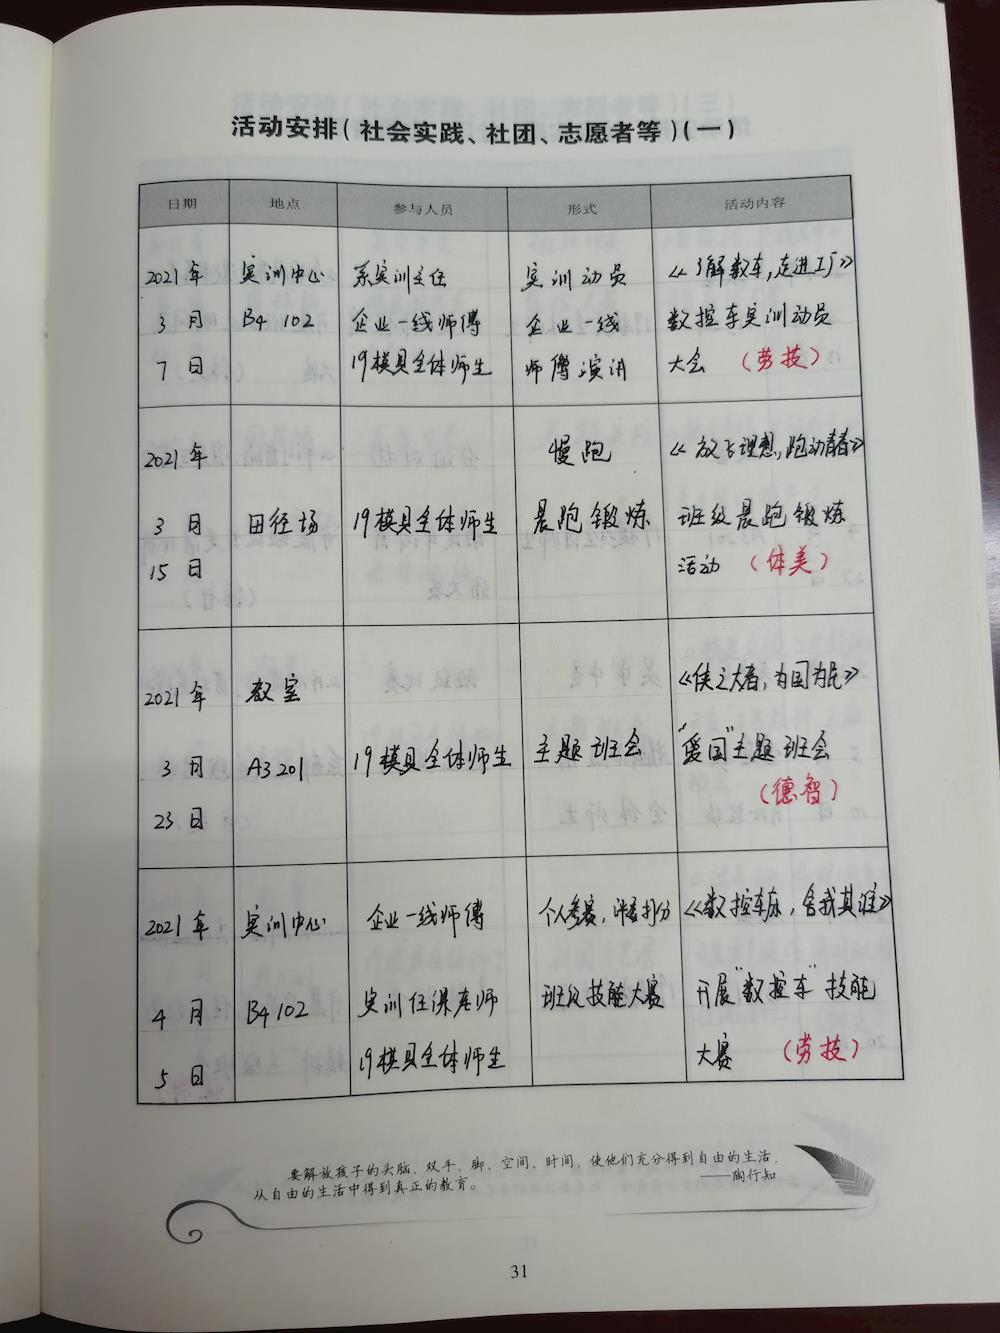 活动安排(社会实践、社团、志愿者等)(一)
日期 地点 参与人员 形式 活动内容
2021年 实训中心 系实训主任 实训动员 《了解数车,走进工厂》
3月 B4 102 企业一线师傅 企业一线 数控车实训动员
7日 19模具全体师生 师傅演讲 大会 (劳技)
2021年 慢跑 《放飞理想,跑动青春》
3日 田径场 19模具全体师生 晨跑锻炼 班级晨跑锻炼
15日 活动 (体美)
2021年 教室 《侠之大者,为国为民》
3日 A3201 19模具全体师生 主题班会 "爱国"主题班会
23日 (德智)
2021年 实训中心 企业一线师傅 个人参赛,评委打分 《数控车床,舍我其谁》
4月 B4 102 实训任课老师 班级技能大赛 开展"数控车"技能
5日 19模具全体师生 大赛 (劳技)
要解放孩子的头脑、双手、脚、空间、时间,使他们充分得到自由的生活,
从自由的生活中得到真正的教育。 ——陶行知
31